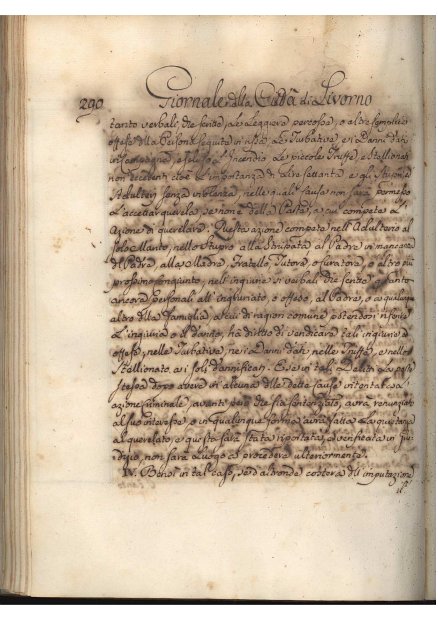 290. Giornale della Città di Livorno
tanto verbali che scritte, Le Leggiere percosse, o altre semplici
offese alla Persona seguite in rissa, Le Turbative, e i Danni dati
in Campagna, escluso l'Incendio, Le piccole Truffe, e Stellionati
non eccedenti cioè L'importanza di Lire settanta, e gli Stupri, ed
Adulterj senza violenza, nelle quali cause non sarà permesso
l'accettar querela se non della Parte, a cui competa l'
Azione di querelare. Questa azione compete nell'Adulterio al
solo Marito, nello Stupro alla Stuprata, al Padre in mancanza
di Padre, alla Madre, Fratello, Tutore, o Curatore, o altro più
prossimo congiunto, nell'ingiurie sì verbali che scritte, quanto
ancora personali all'ingiuriato, o offeso, al Padre, o a qualunque
altro della Famiglia, a cui di ragion comune potendosi riferire
L'ingiuria o il danno, ha diritto di vendicare tali ingiurie, ed
offese, nelle Turbative, nei Danni dati, nelle Truffe, e nello
Stellionato, ai soli Dannificati. E se in tali Delitti la parte
stessa dopo avere in alcuna delle dette cause intentata
azione criminale, avanti però che sia sentenziato, avrà renunziato
al suo interesse, o in qualunque forma avrà fatta la quietanza
al querelato, e questa sarà stata riportata, e verificata in giu-
dizio, non sarà luogo a procedere ulteriormente.
IV. Bensì in tal caso, se d'altronde costerà di imputazione